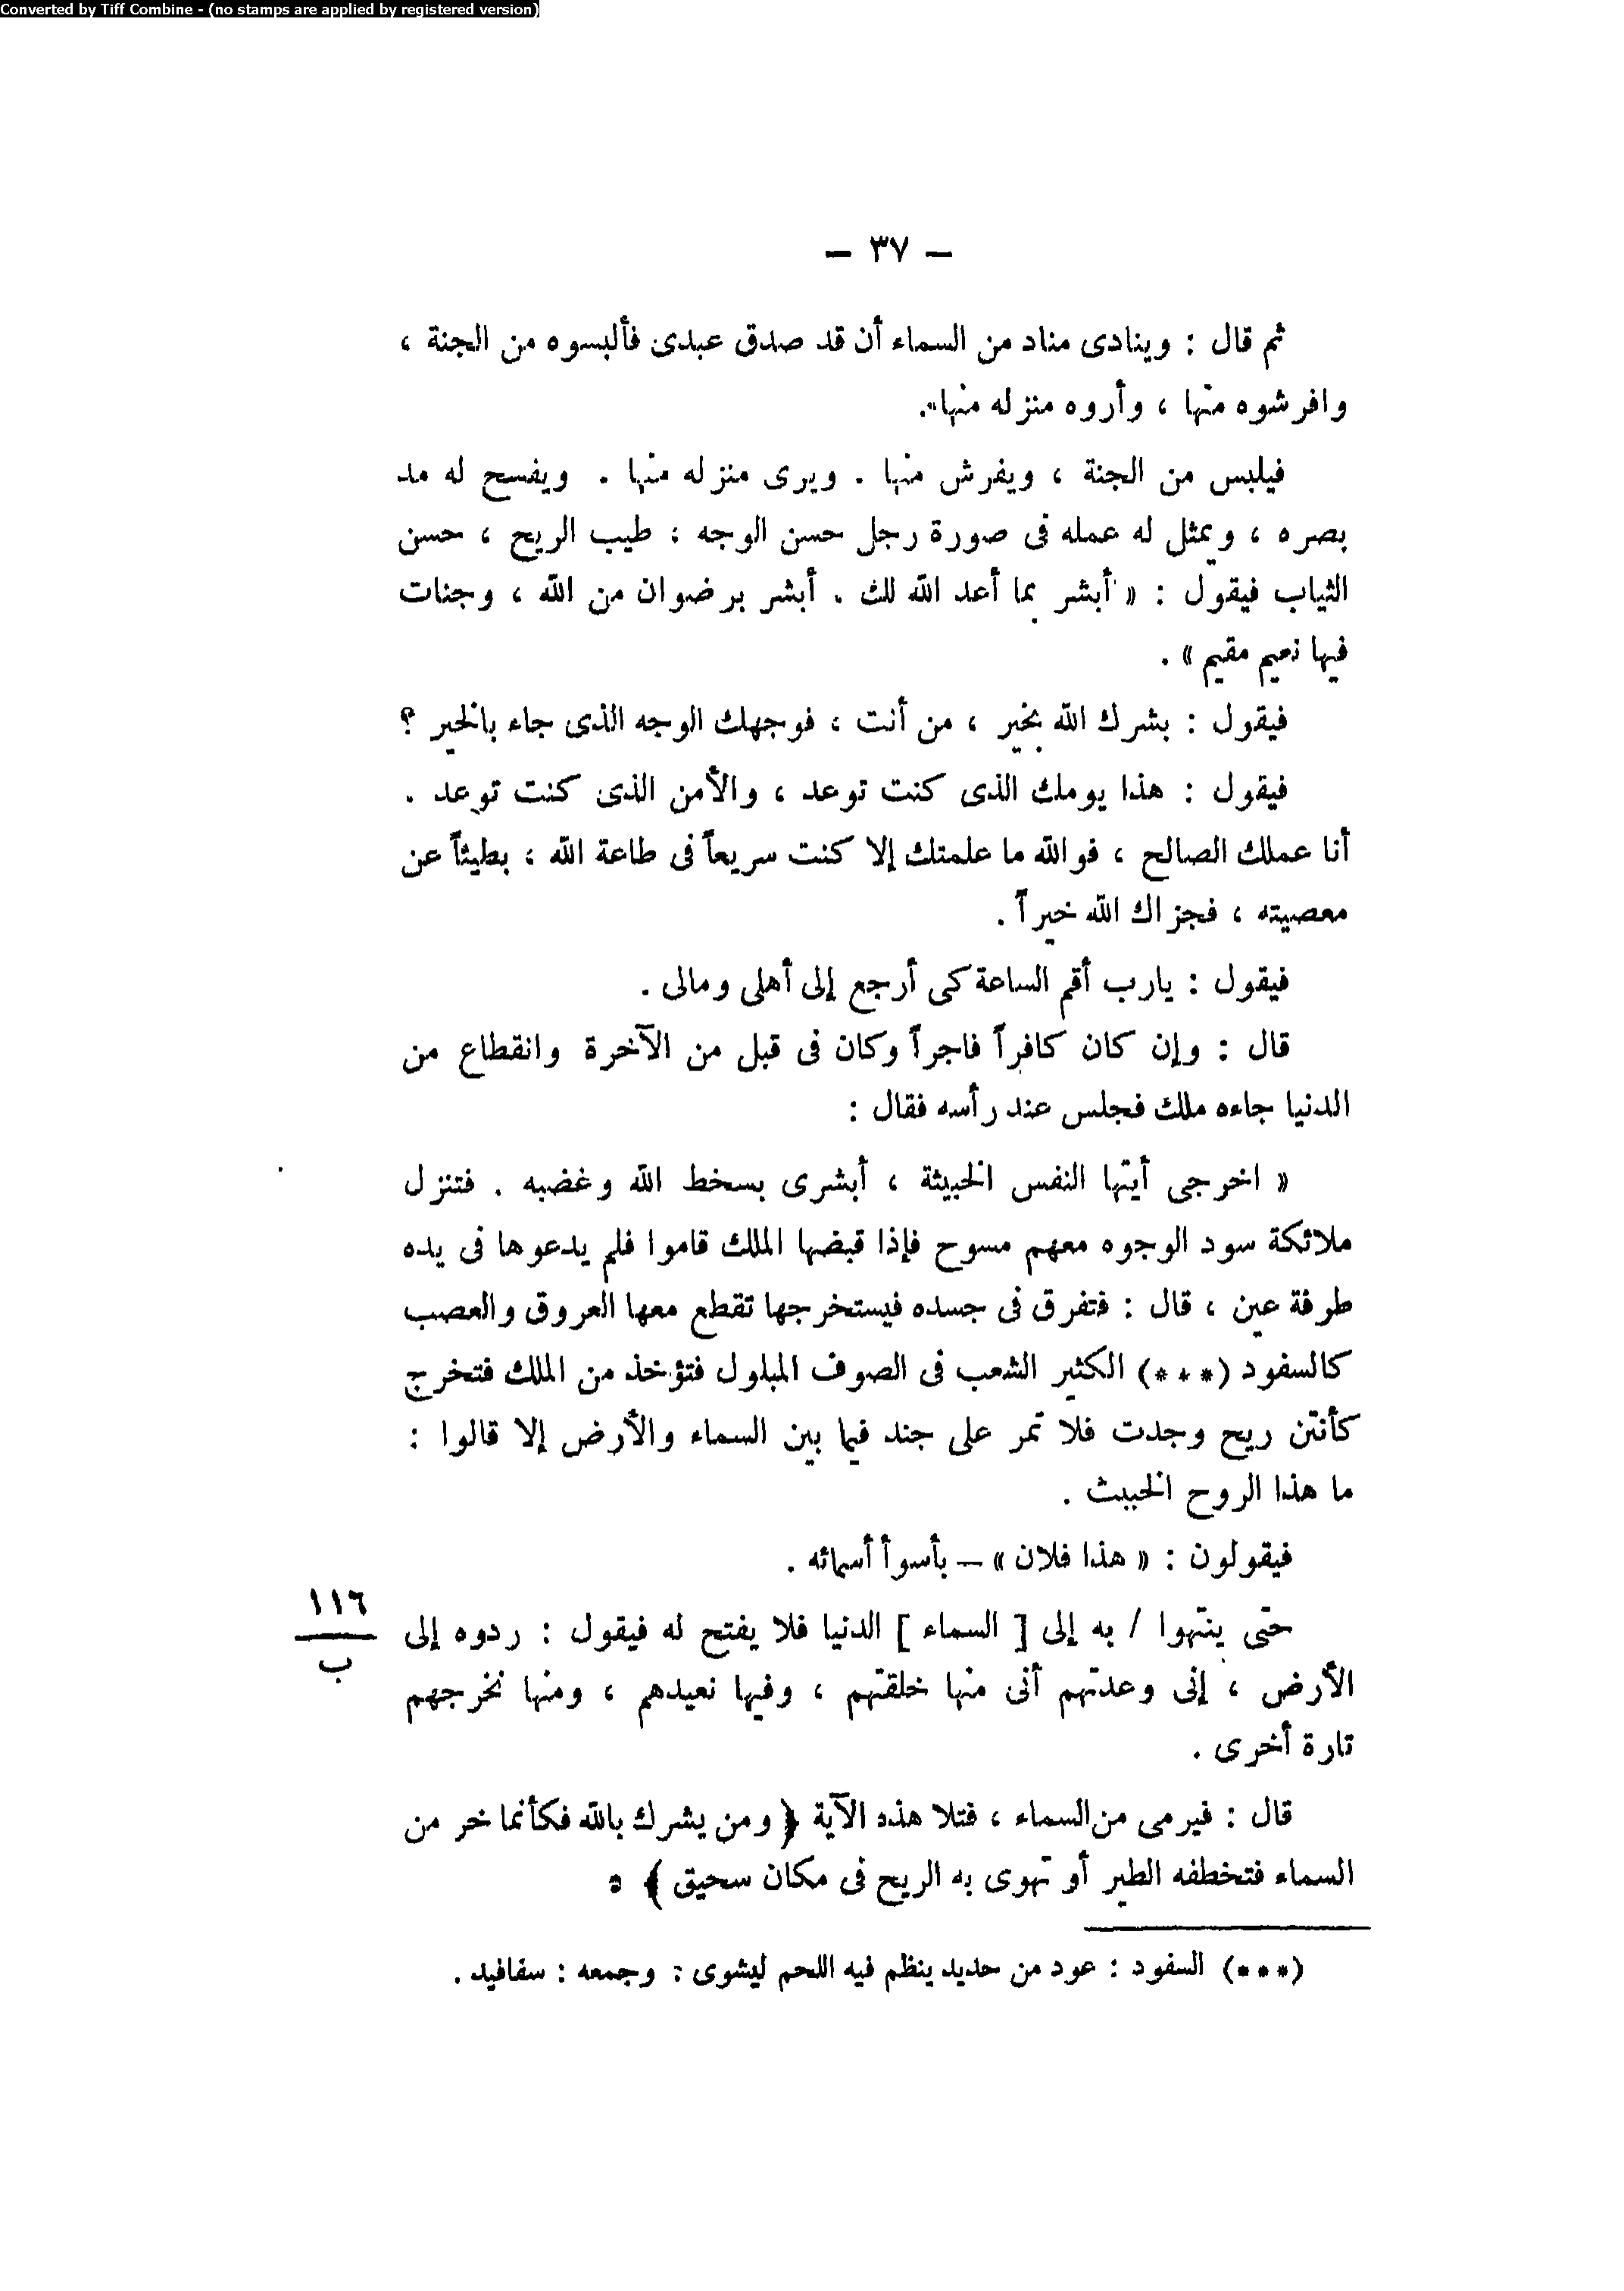 Converted by Tiff Combine - (no stamps are applied by registered version)
— ٣٧ —
ثم قال : وينادى مناد من السماء أن قد صدق عبدى فألبسوه من الجنة ،
وافرشوه منها ، وأروه منزله منها».
فيلبس من الجنة ، ويفرش منها . ويرى منزله منها . ويفسح له مد
بصره ، ويمثل له عمله فى صورة رجل حسن الوجه ، طيب الريح ، حسن
الثياب فيقول : « أبشر بما أعد الله لك . أبشر برضوان من الله ، وجنات
فيها نعيم مقيم » .
فيقول : بشرك الله بخير ، من أنت ، فوجهك الوجه الذى جاء بالخير ؟
فيقول : هذا يومك الذى كنت توعد ، والأمن الذى كنت توعد .
أنا عملك الصالح ، فوالله ما علمتك إلا كنت سريعاً فى طاعة الله ، بطيئاً عن
معصيته ، فجزاك الله خيراً .
فيقول : يارب أقم الساعة كى أرجع إلى أهلى ومالى .
قال : وإن كان كافراً فاجراً وكان فى قبل من الآخرة وانقطاع من
الدنيا جاءه ملك فجلس عند رأسه فقال :
« اخرجى أيتها النفس الخبيثة ، أبشرى بسخط الله وغضبه . فتنزل
ملائكة سود الوجوه معهم مسوح فإذا قبضها الملك قاموا فلم يدعوها فى يده
طرفة عين ، قال : فتفرق فى جسده فيستخرجها تقطع معها العروق والعصب
كالسفود (***) الكثير الشعب فى الصوف المبلول فتؤخذ من الملك فتخرج
كأنتن ريح وجدت فلا تمر على جند فيما بين السماء والأرض إلا قالوا :
ما هذا الروح الخبيث .
فيقولون : « هذا فلان » — بأسوأ أسمائه .
حتى ينتهوا / به إلى [ السماء ] الدنيا فلا يفتح له فيقول : ردوه إلى
١١٦
ب
الأرض ، إنى وعدتهم أنى منها خلقتهم ، وفيها نعيدهم ، ومنها نخرجهم
تارة أخرى .
قال : فيرمى من السماء ، فتلا هذه الآية ﴿ ومن يشرك بالله فكأنما خر من
السماء فتخطفه الطير أو تهوى به الريح فى مكان سحيق ﴾ .
(***) السفود : عود من حديد ينظم فيه اللحم ليشوى ، وجمعه : سفافيد .